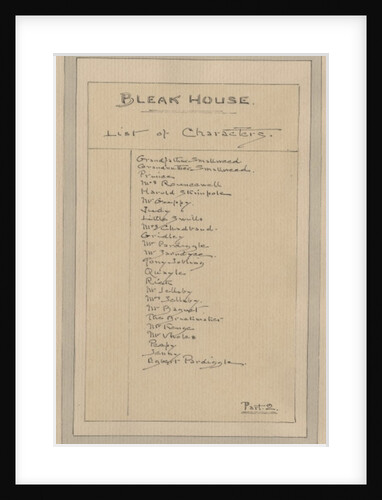 BLEAK HOUSE.
List of Characters.
Grandfather Smallweed
Grandmother Smallweed.
Prince
Mrs Rouncewell
Harold Skimpole
Mr Guppy.
Judy
Little Swills
Mrs Chadband
Gridley
Mr Pardiggle
Mr Snagsby
Tony Jobling
Quayle
Rick
Mr Jellyby
Mrs Jellyby.
Mr Bagnet
The Brickmaker
Mr Kenge
Mr Vholes
Peepy
Jenny
Egbert Pardiggle
Part 2